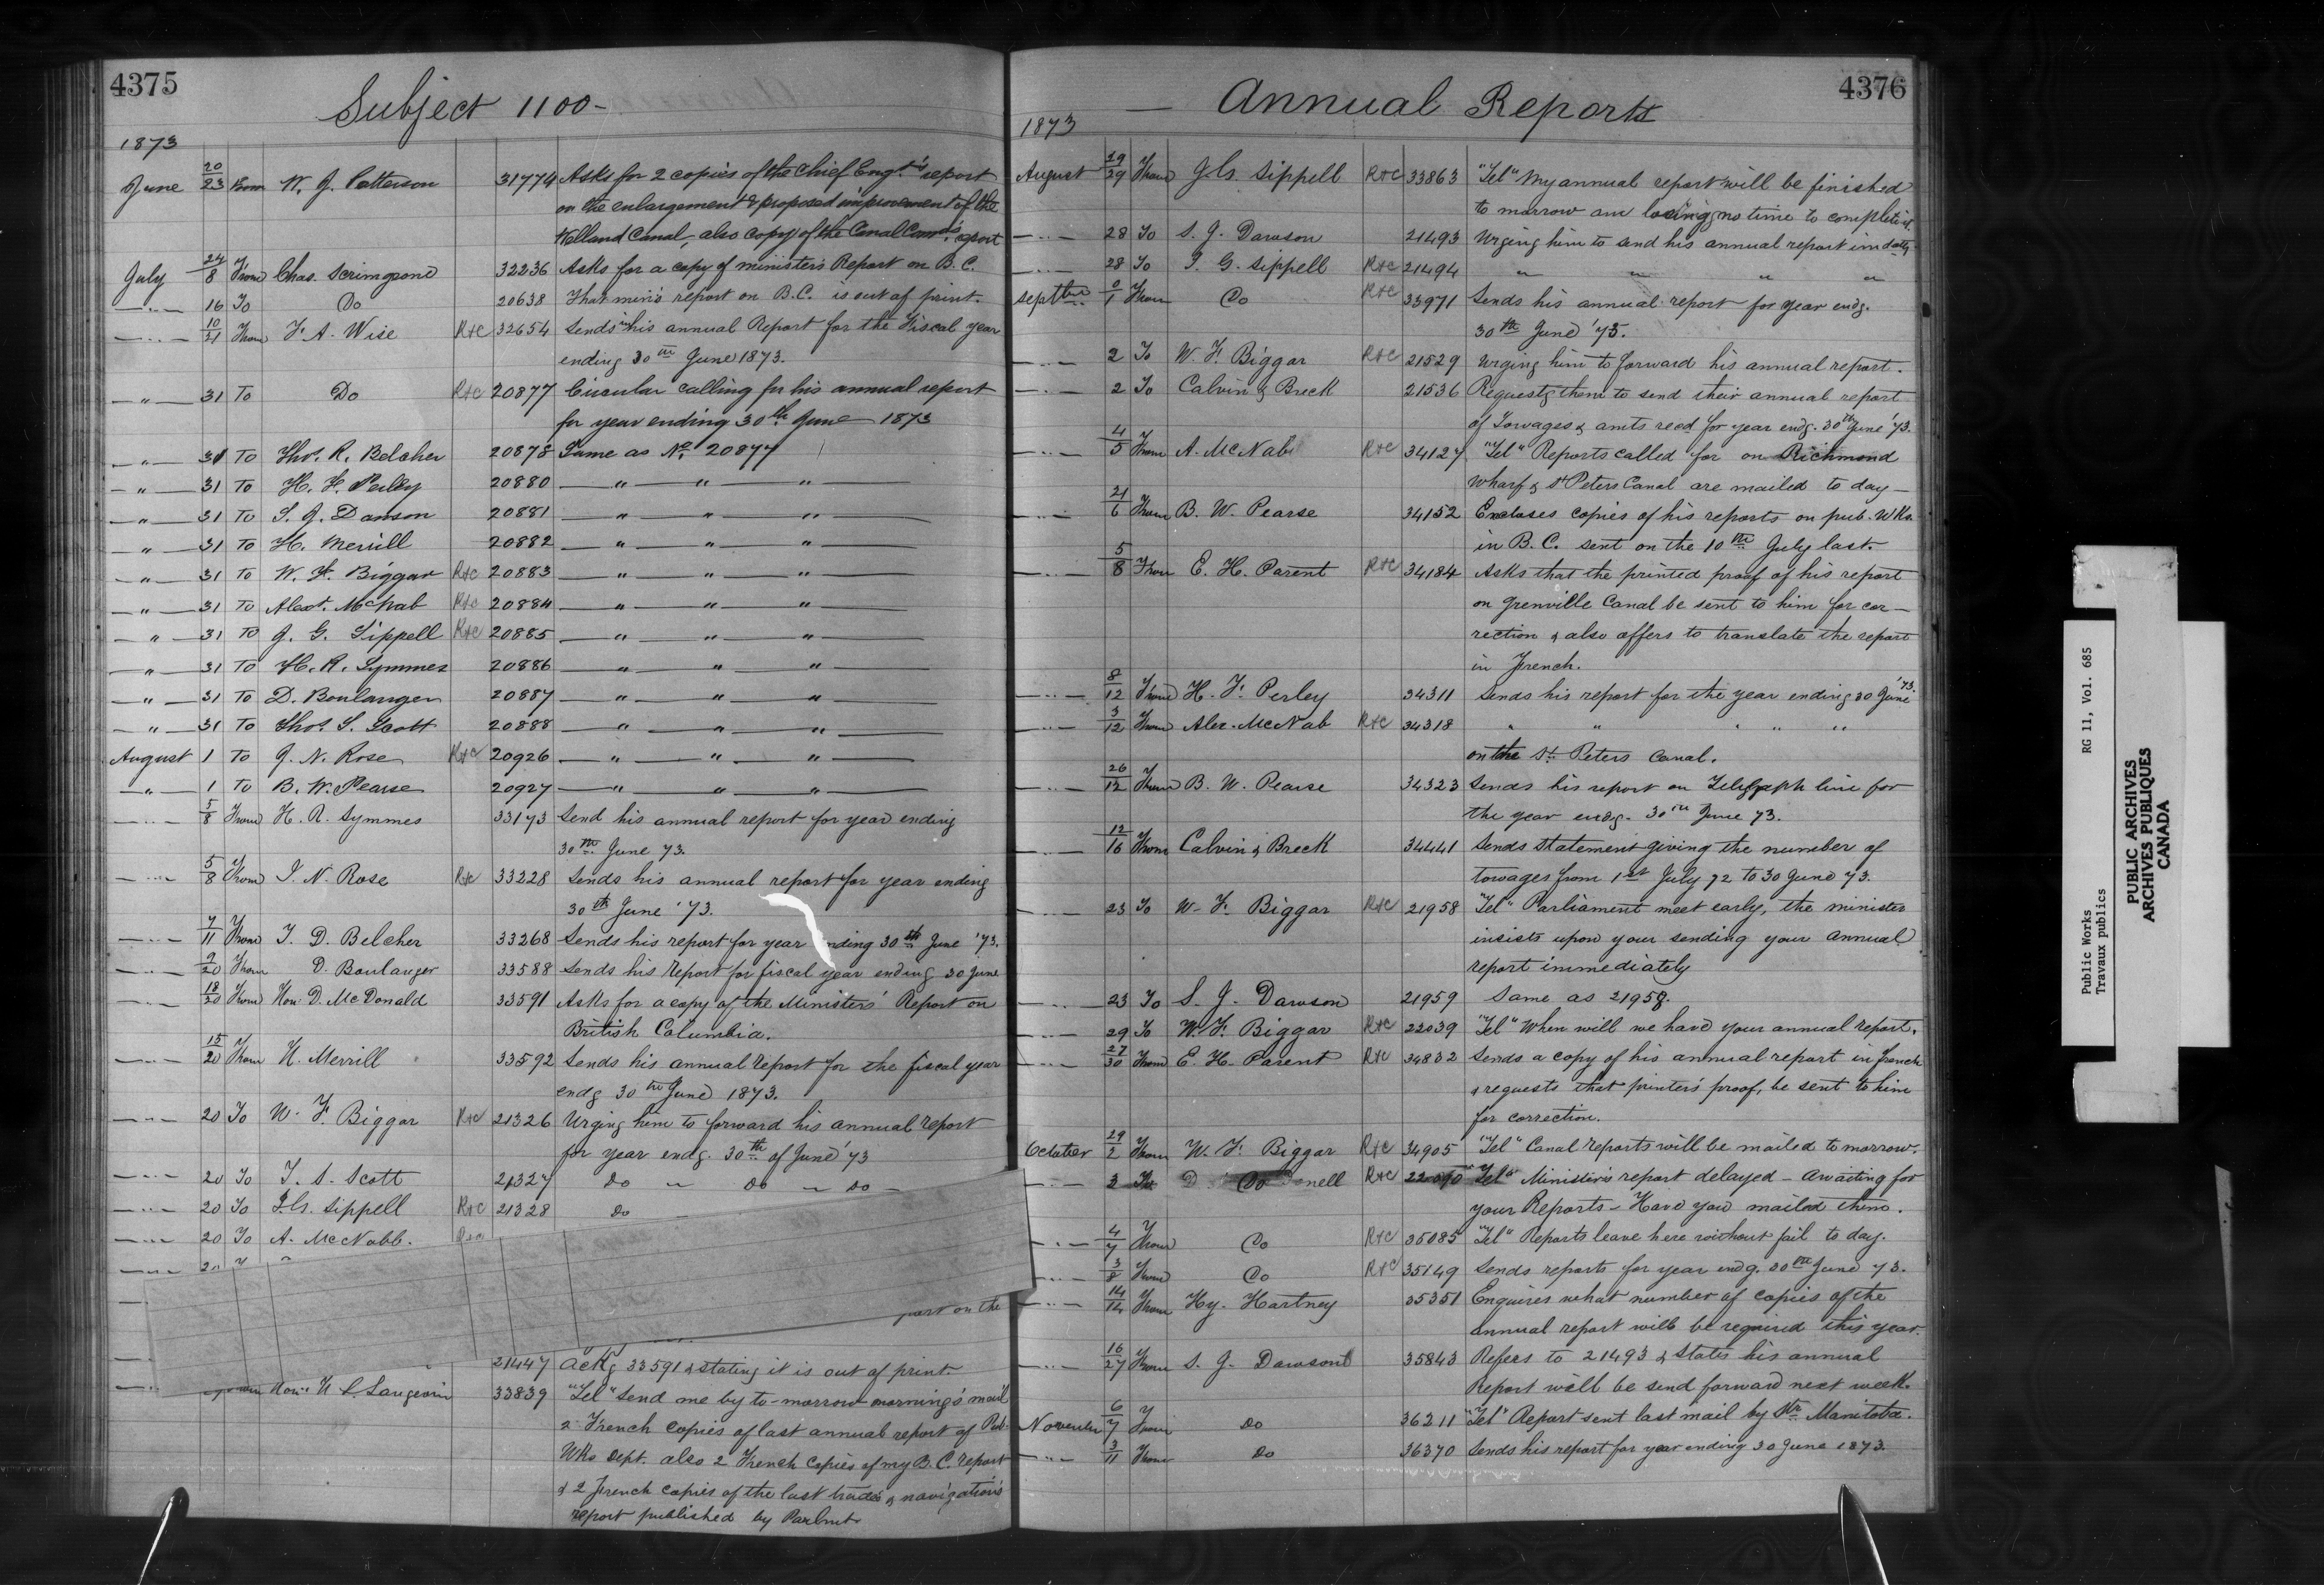 4375
Subject 1100-
1873
June 20/23 From W. J. Patterson 31774 Asks for 2 copies of the Chief Engr's report
on the enlargement & proposed improvement of the
Welland Canal, also copy of the Canal Comrs report
July 24/8 From Chas. Scrimgeour 32236 Asks for a copy of minister's Report on B.C.
" 16 To Do 20638 That min's report on B.C. is out of print.
" 10/21 From F. A. Wise R&C 32654 Sends in his annual Report for the Fiscal year
ending 30th June 1873.
" 31 To Do R&C 20877 Circular calling for his annual report
for year ending 30th June 1873
" 31 To Thos. R. Belcher 20878 Same as No. 20877
" 31 To H. F. Perley 20880 " " "
" 31 To S. J. Dawson 20881 " " "
" 31 To H. Merrill 20882 " " "
" 31 To W. F. Biggar R&C 20883 " " "
" 31 To Alexr. McNab R&C 20884 " " "
" 31 To J. G. Sippell R&C 20885 " " "
" 31 To H. R. Symmes 20886 " " "
" 31 To D. Boulanger 20887 " " "
" 31 To Thos. S. Scott 20888 " " "
August 1 To J. N. Rose R&C 20926 " " "
" 1 To B. W. Pearse 20927 " " "
" 5/8 From H. R. Symmes 33173 Send his annual report for year ending
30th June 73.
" 5/8 From J. N. Rose R&C 33228 Sends his annual report for year ending
30th June '73.
" 7/11 From T. D. Belcher 33268 Sends his report for year ending 30th June '73.
" 9/20 From D. Boulanger 33588 Sends his report for fiscal year ending 30 June
" 18/20 From Hon. D. McDonald 33591 Asks for a copy of the Ministers' Report on
British Columbia.
" 15/20 From H. Merrill 33592 Sends his annual report for the fiscal year
endg 30th June 1873.
" 20 To W. F. Biggar R&C 21326 Urging him to forward his annual report
for year endg. 30th of June '73
" 20 To T. S. Scott 21327 Do " Do " Do
" 20 To J. G. Sippell R&C 21328 Do
" 20 To A. McNabb.
port on the
21447 Ackg 33591 & stating it is out of print.
Hon. H L Langevin 33839 "Tel" Send me by to-morrow morning's mail
2 French copies of last annual report of Pub.
Wks Dept. also 2 French copies of my B.C. report
& 2 French copies of the last trade & navigation's
report published by Parlmt.
4376
Annual Reports
1873
August 29/29 From J. G. Sippell R&C 33863 "Tel" My annual report will be finished
to morrow am losing no time to complete it.
" 28 To S. J. Dawson 21493 Urging him to send his annual report immdatly
" 28 To J. G. Sippell R&C 21494 " " " "
Septber 0/1 From Do R&C 33971 Sends his annual report for year endg.
30th June '73.
" 2 To W. F. Biggar R&C 21529 Urging him to forward his annual report.
" 2 To Calvin & Breck 21536 Requestg them to send their annual report
of Towages & amts recd for year endg. 30th June '73.
" 4/5 From A. McNab R&C 34127 "Tel" Reports called for on Richmond
Wharf & St Peters Canal are mailed to day
" 21/6 From B. W. Pearse 34152 Encloses copies of his reports on pub. Wks.
in B.C. sent on the 10th July last.
" 5/8 From E. H. Parent R&C 34184 Asks that the printed proof of his report
on Grenville Canal be sent to him for cor-
rection & also offers to translate the report
in French.
" 8/12 From H. F. Perley 34311 Sends his report for the year ending 30 June '73.
" 3/12 From Alex. McNab R&C 34318 " " " " "
on the St. Peters Canal.
" 26/12 From B. W. Pearse 34323 Sends his report on Telegraph line for
the year endg. 30th June 73.
" 12/16 From Calvin & Breck 34441 Sends statement giving the number of
towages from 1st July 72 to 30 June 73.
" 23 To W. F. Biggar R&C 21958 "Tel" Parliament meet early, the minister
insists upon your sending your annual
report immediately
" 23 To S. J. Dawson 21959 Same as 21958.
" 29 To W. F. Biggar R&C 22039 "Tel" When will we have your annual report.
" 27/30 From E. H. Parent R&C 34832 Sends a copy of his annual report in french
& requests that printers' proof, be sent to him
for correction.
October 29/2 From W. F. Biggar R&C 34905 "Tel" Canal reports will be mailed to morrow.
" 3 To Do R&C 22090 "Tel" Minister's report delayed - awaiting for
your Reports - Have you mailed them.
" 4/7 From Do R&C 35085 "Tel" Reports leave here without fail to day.
" 3/8 From Do R&C 35149 Sends reports for year endg. 30th June 73.
" 14/14 From Hy. Hartney 35351 Enquires what number of copies of the
annual report will be required this year.
" 16/27 From S. J. Dawson 35843 Refers to 21493 & states his annual
Report will be send forward next week.
November 6/7 From Do 36211 "Tel" Report sent last mail by Str Manitoba.
" 3/11 From Do 36370 Sends his report for year ending 30 June 1873.
Public Works RG 11, Vol. 685
Travaux publics
PUBLIC ARCHIVES
ARCHIVES PUBLIQUES
CANADA